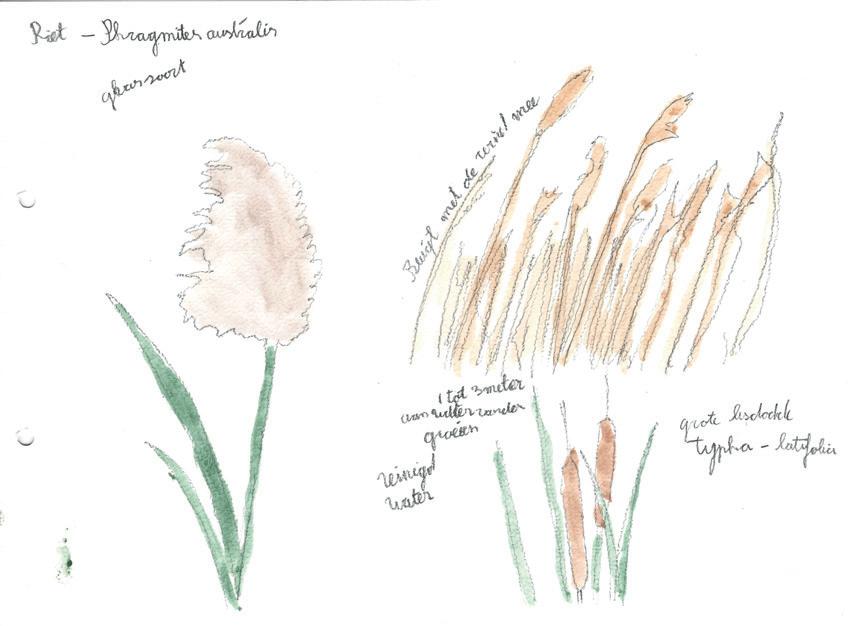 Riet - Phragmites australis
grassoort
Buigt met de wind mee
1 tot 3 meter
aan
groeien
reinigt
water
grote lisdodde
typha - latifolia